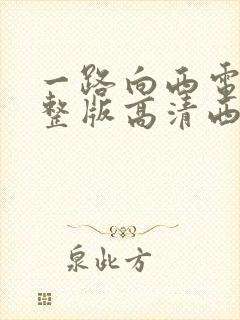 一路向西电
整版高清西
泉此方